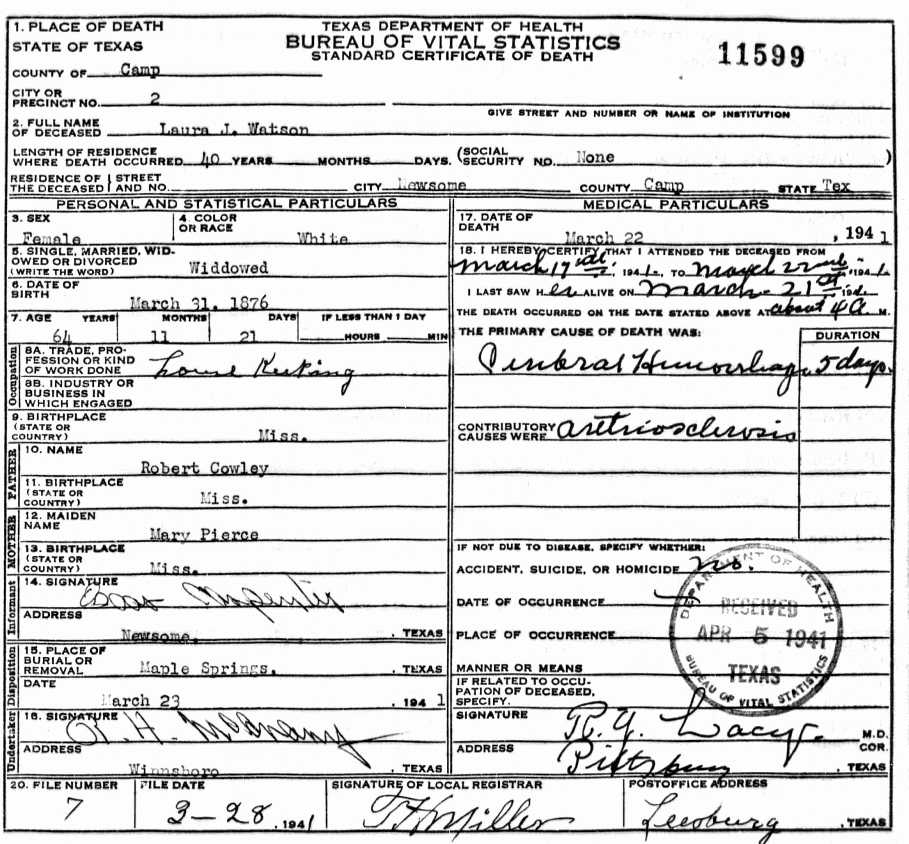 TEXAS DEPARTMENT OF HEALTH
BUREAU OF VITAL STATISTICS
STANDARD CERTIFICATE OF DEATH
11599
1. PLACE OF DEATH
STATE OF TEXAS
COUNTY OF Camp
CITY OR
PRECINCT NO. 2
GIVE STREET AND NUMBER OR NAME OF INSTITUTION
2. FULL NAME
OF DECEASED Laura J. Watson
LENGTH OF RESIDENCE
WHERE DEATH OCCURRED 40 YEARS MONTHS DAYS. (SOCIAL SECURITY NO. None )
RESIDENCE OF THE DECEASED STREET AND NO. CITY Newsome COUNTY Camp STATE Tex
PERSONAL AND STATISTICAL PARTICULARS
3. SEX
Female
4. COLOR
OR RACE
White
5. SINGLE, MARRIED, WID-
OWED OR DIVORCED
(WRITE THE WORD) Widdowed
6. DATE OF
BIRTH March 31, 1876
7. AGE YEARS MONTHS DAYS IF LESS THAN 1 DAY
64 11 21 HOURS MIN
Occupation
8A. TRADE, PRO-
FESSION OR KIND
OF WORK DONE House Keeking
8B. INDUSTRY OR
BUSINESS IN
WHICH ENGAGED
9. BIRTHPLACE
(STATE OR
COUNTRY) Miss.
FATHER
10. NAME
Robert Cowley
11. BIRTHPLACE
(STATE OR
COUNTRY) Miss.
MOTHER
12. MAIDEN
NAME Mary Pierce
13. BIRTHPLACE
(STATE OR
COUNTRY) Miss.
Informant
14. SIGNATURE
Carpenter
ADDRESS
Newsome, , TEXAS
Undertaker Disposition
15. PLACE OF
BURIAL OR
REMOVAL Maple Springs. , TEXAS
DATE
March 23 , 1941
16. SIGNATURE
ADDRESS
Winnsboro , TEXAS
MEDICAL PARTICULARS
17. DATE OF
DEATH March 22 , 1941
18. I HEREBY CERTIFY THAT I ATTENDED THE DECEASED FROM
March 17th 1941, TO March 22nd 1941
I LAST SAW Her ALIVE ON March 21st 194
THE DEATH OCCURRED ON THE DATE STATED ABOVE AT about 4 A M.
THE PRIMARY CAUSE OF DEATH WAS: DURATION
Cerebral Hemorrhage 5 days.
CONTRIBUTORY
CAUSES WERE aretriosclerosis
IF NOT DUE TO DISEASE, SPECIFY WHETHER:
ACCIDENT, SUICIDE, OR HOMICIDE no.
DATE OF OCCURRENCE
PLACE OF OCCURRENCE
MANNER OR MEANS
IF RELATED TO OCCU-
PATION OF DECEASED,
SPECIFY.
DEPARTMENT OF HEALTH
RECEIVED
APR 5 1941
TEXAS
BUREAU OF VITAL STATISTICS
SIGNATURE R. Y. Lacy. M.D.
COR.
ADDRESS Pittsburg , TEXAS
20. FILE NUMBER
7
FILE DATE
3-28 , 1941
SIGNATURE OF LOCAL REGISTRAR
T H Miller
POSTOFFICE ADDRESS
Leesburg , TEXAS